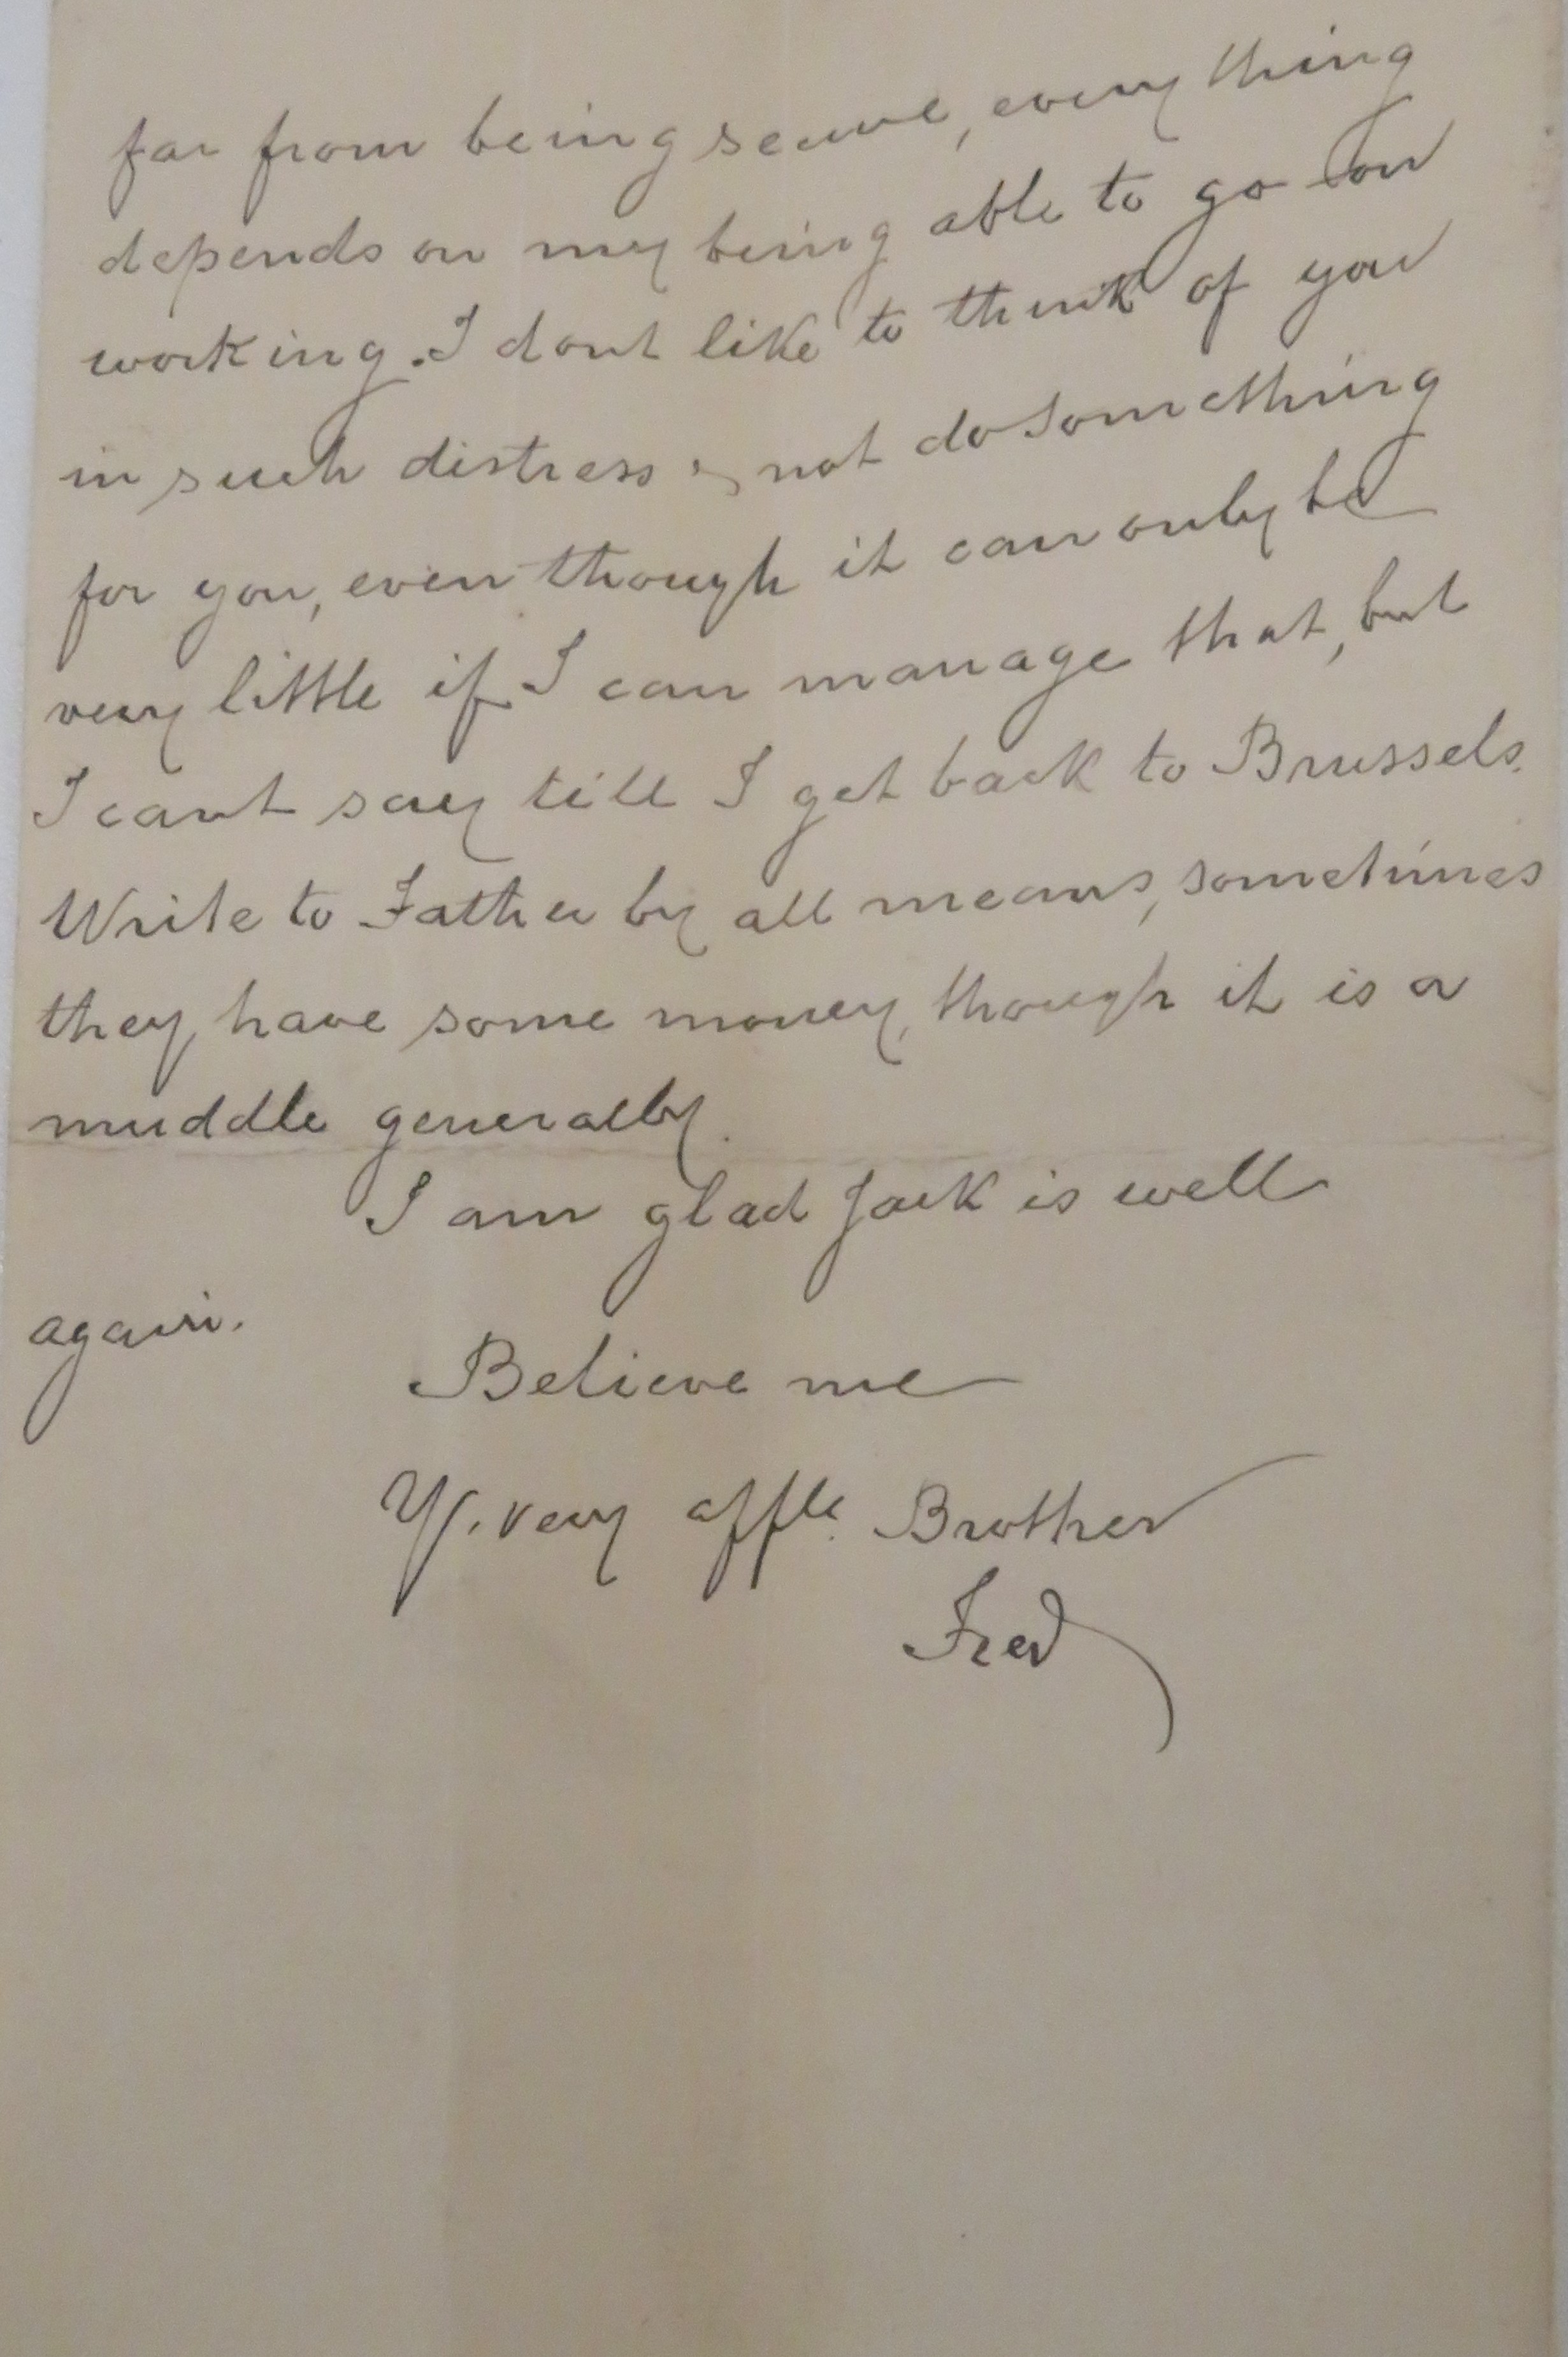 far from being secure, every thing
depends on my being able to go on
working. I dont like to think of you
in such distress & not do something
for you, even though it can only be
very little if I can manage that, but
I cant say till I get back to Brussels.
Write to Father by all means, sometimes
they have some money, though it is a
muddle generally.
I am glad Jack is well
again.
Believe me
Yr. very affte. Brother
Fred